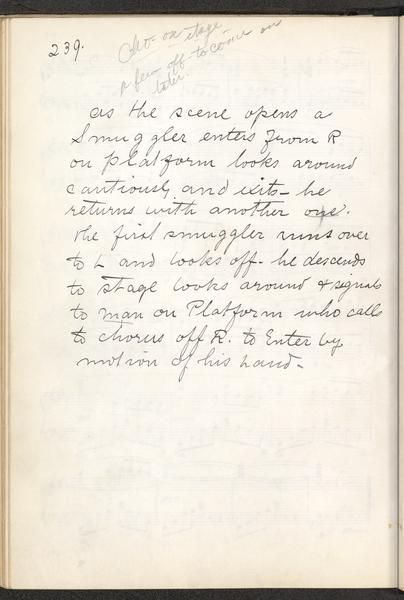 239.
Cho- on stage
A few off- to come on
later.
as the scene opens a
Smuggler enters from R
on platform looks around
cautiously, and exits- he
returns with another one.
The first smuggler runs over
to L and looks off- he descends
to stage looks around & signals
to man on Platform who calls
to chorus off R. to Enter by
motion of his hand-